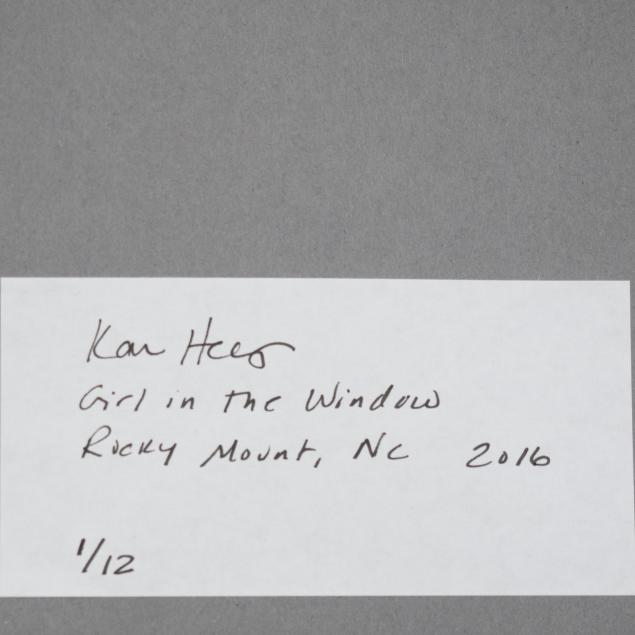 Girl in the Window
Rocky Mount, NC 2016
1/12